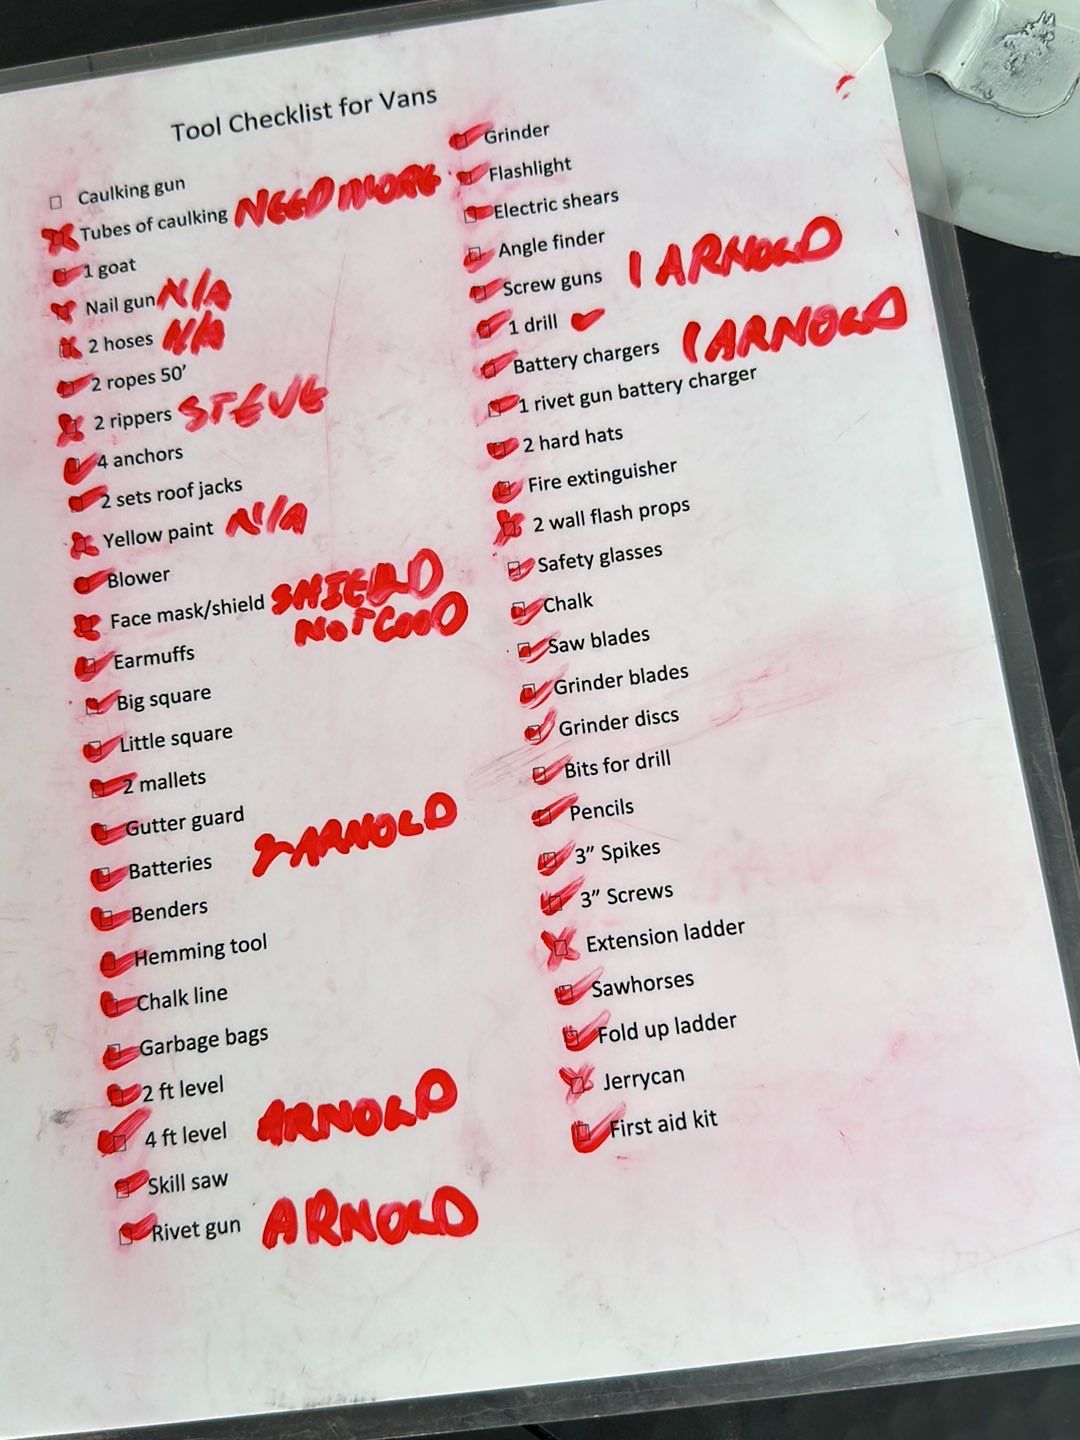 Tool Checklist for Vans
Caulking gun
Tubes of caulking NEED MORE
1 goat
Nail gun N/A
2 hoses N/A
2 ropes 50'
2 rippers STEVE
4 anchors
2 sets roof jacks
Yellow paint N/A
Blower
Face mask/shield SHIELD
NOT GOOD
Earmuffs
Big square
Little square
2 mallets
Gutter guard
Batteries 2 ARNOLD
Benders
Hemming tool
Chalk line
Garbage bags
2 ft level
4 ft level ARNOLD
Skill saw
Rivet gun ARNOLD
Grinder
Flashlight
Electric shears
Angle finder
Screw guns 1 ARNOLD
1 drill
Battery chargers 1 ARNOLD
1 rivet gun battery charger
2 hard hats
Fire extinguisher
2 wall flash props
Safety glasses
Chalk
Saw blades
Grinder blades
Grinder discs
Bits for drill
Pencils
3” Spikes
3” Screws
Extension ladder
Sawhorses
Fold up ladder
Jerrycan
First aid kit